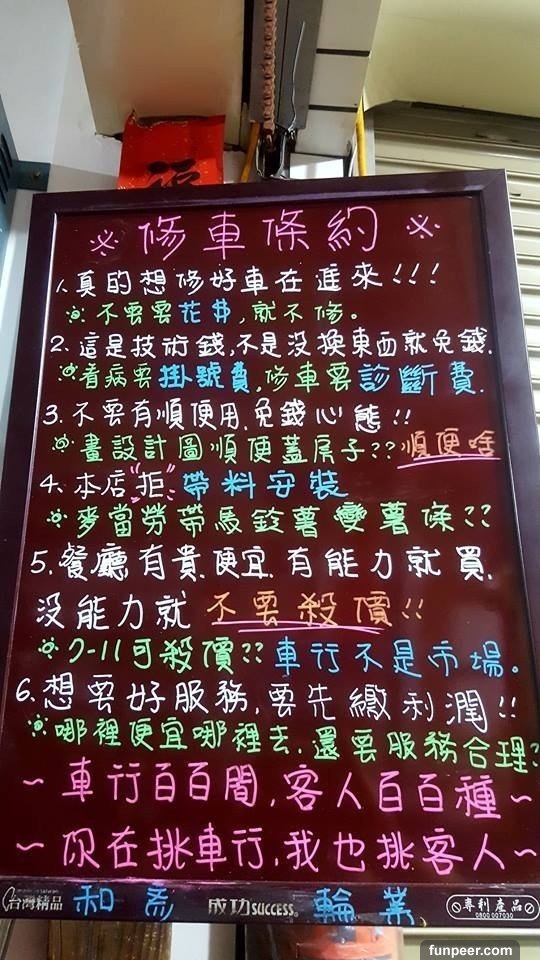 ※修車條約※
1.真的想修好車在進來!!!
※不要要花爿,就不修。
2.這是技術錢,不是没換東西就免錢.
※看病要掛號費,修車要診斷費.
3.不要有順便用.免錢心態!!
※畫設計圖順便蓋房子??順便啥
4.本店拒帶料安裝
※麥當勞帶馬鈴薯變薯條??
5.餐廳有貴.便宜.有能力就買.
没能力就不要殺價!!
※7-11可殺價??車行不是市場。
6.想要好服務,要先繳利潤!!
※哪裡便宜哪裡去.還要服務合理?
~車行百百間,客人百百種~
~你在挑車行,我也挑客人~
台灣精品 和 成功SUCCESS® 輪業 專利產品
0800 007030
funpeer.com